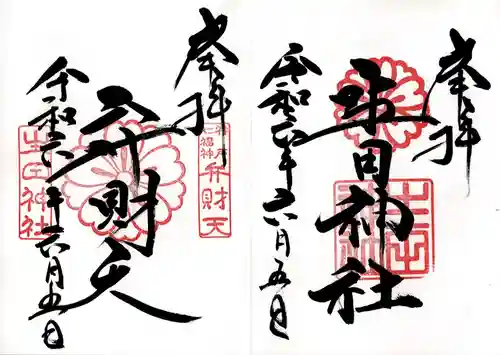 奉拝
神戸七福神
弁財天
弁財天
令和六年六月五日
生田神社
奉拝
生田神社
生田神社
令和六年六月五日